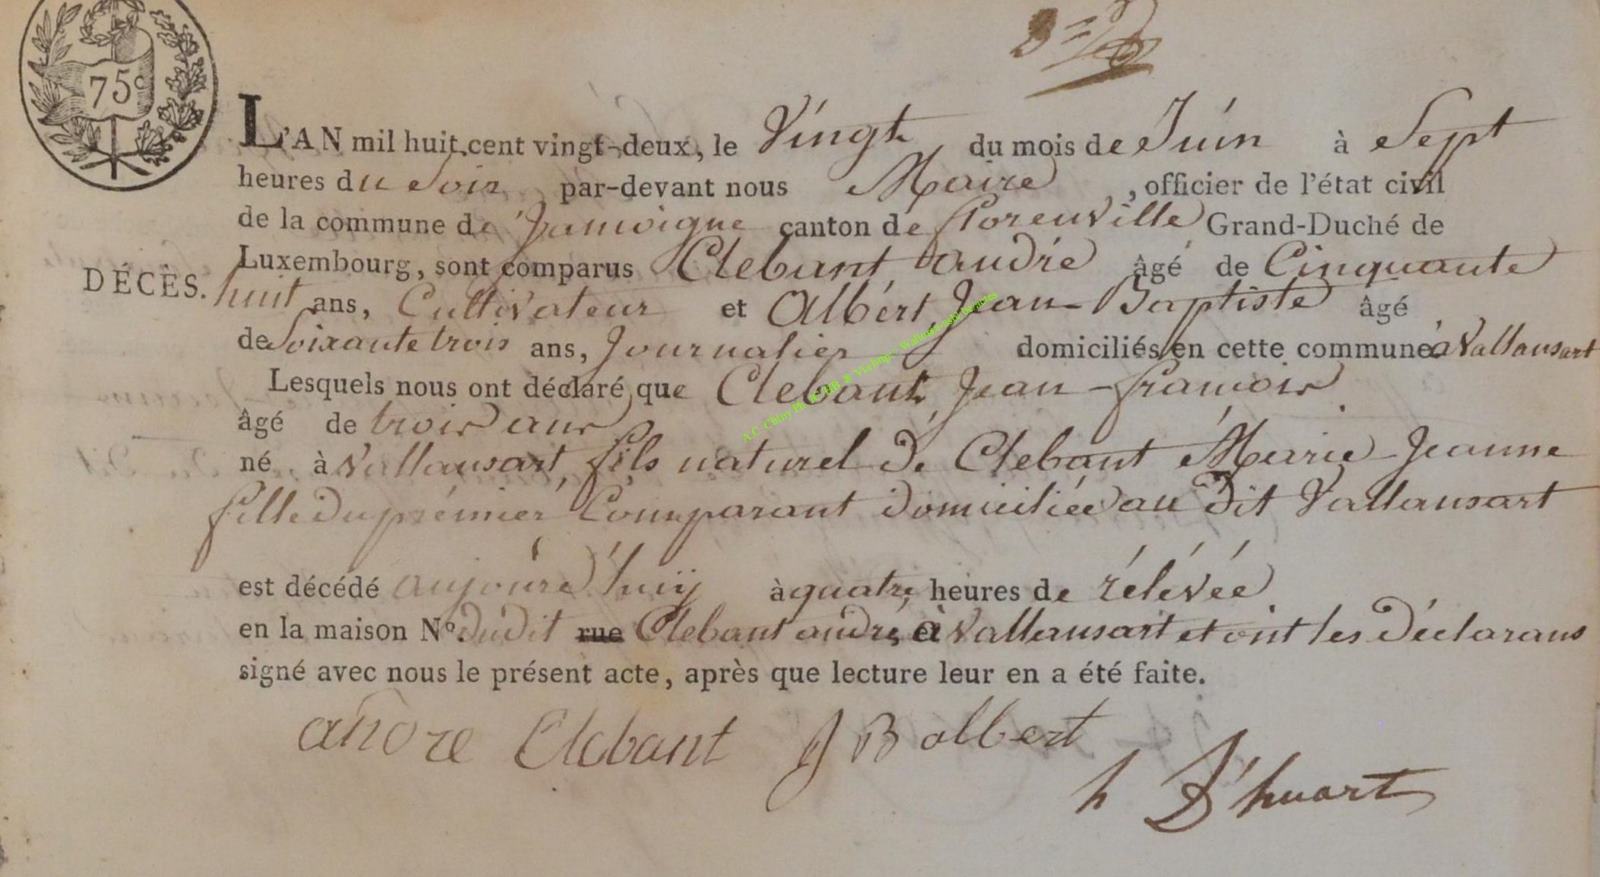 75c
L'AN mil huit cent vingt-deux, le Vingt du mois de Juin à Sept
heures du Soir par-devant nous Maire, officier de l'état civil
de la commune de Jamoigne canton de florenville Grand-Duché de
Luxembourg, sont comparus Clebant andré âgé de Cinquante
DÉCÈS.
huit ans, Cultivateur et Albért Jean-Baptiste âgé
de Soixante trois ans, Journalier domiciliés en cette commune à Vallansart
Lesquels nous ont déclaré que Clebant Jean-francois
âgé de trois ans
né à Vallansart, fils naturel de Clebant Marie Jeanne
fille du prémiér Comparant domiciliée au dit Vallansart
est décédé aujourd'huij à quatre heures de rélévée
en la maison No. dudit rue Clebant andré, à Vallansart et ont les déclarans
signé avec nous le présent acte, après que lecture leur en a été faite.
andre Clebant J B albert
h D'huart